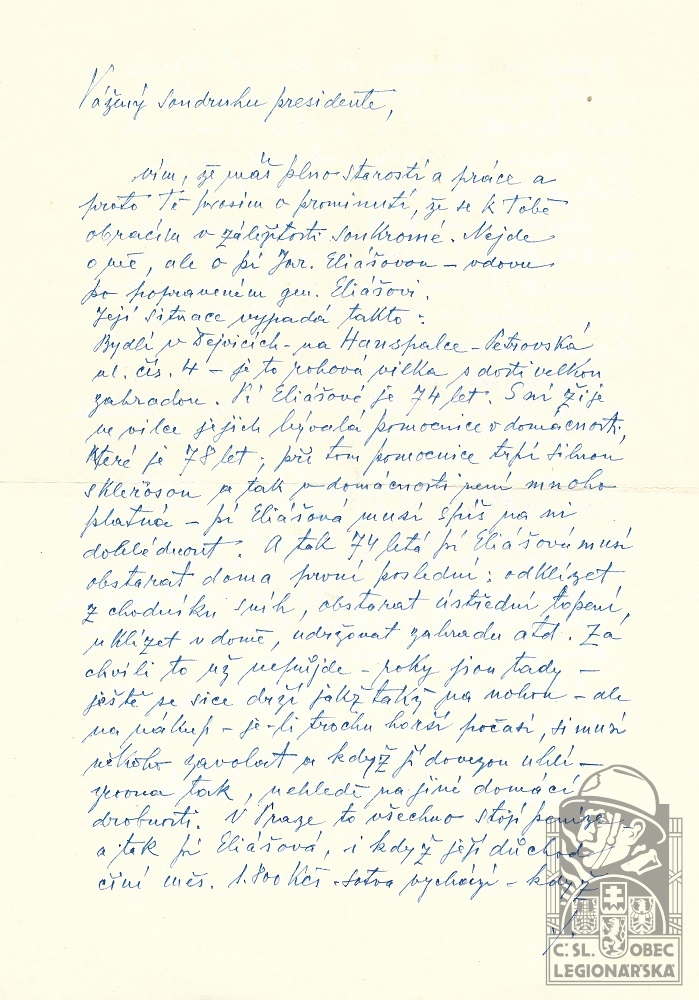 Vážený soudruhu presidente,
vím, že máš plno starostí a práce a
proto Tě prosím o prominutí, že se k Tobě
obracím v záležitosti soukromé. Nejde
o mě, ale o pí Jar. Eliášovou – vdovu
po popraveném gen. Eliášovi.
Její situace vypadá takto:
Bydlí v Dejvicích – na Hanspalce – Petrovská
ul. čís. 4 – je to rohová vilka s dosti velkou
zahradou. Pí Eliášové je 74 let. S ní žije
ve vilce jejich bývalá pomocnice v domácnosti,
které je 78 let; při tom pomocnice trpí silnou
sklerosou a tak v domácnosti není mnoho
platná – pí Eliášová musí spíš na ni
dohlédnout. A tak 74 letá pí Eliášová musí
obstarat doma první poslední: odklízet
z chodníku sníh, obstarat ústřední topení,
uklízet v domě, udržovat zahradu atd. Za
chvíli to už nepůjde – roky jsou tady –
ještě se sice drží jakž takž na nohou – ale
na nákup – je-li trochu horší počasí, si musí
někoho zavolat a když jí dovezou uhlí –
zrovna tak, nehledě na jiné domácí
drobnosti. V Praze to všechno stojí peníze
a tak pí Eliášová, i když její důchod
činí měs. 1.800 Kčs – sotva vychází – když
Č. SL. OBEC
LEGIONÁŘSKÁ